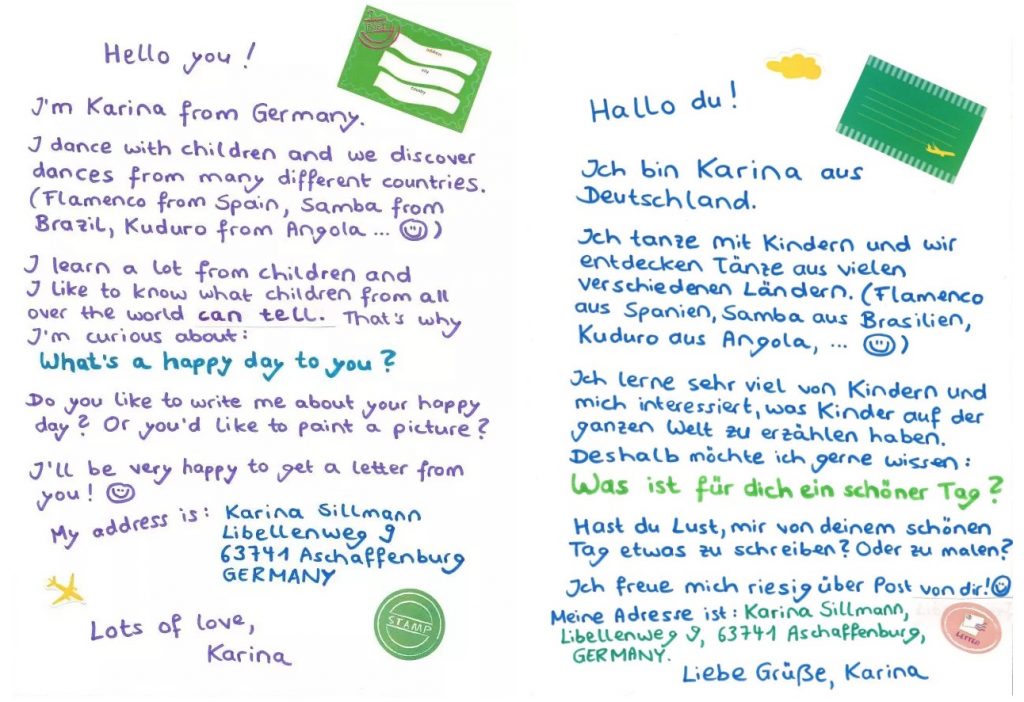 Hello you!
I'm Karina from Germany.
I dance with children and we discover
dances from many different countries.
(Flamenco from Spain, Samba from
Brazil, Kuduro from Angola ... ☺)
I learn a lot from children and
I like to know what children from all
over the world can tell. That's why
I'm curious about:
What's a happy day to you?
Do you like to write me about your happy
day? Or you'd like to paint a picture?
I'll be very happy to get a letter from
you! ☺
My address is: Karina Sillmann
Libellenweg 9
63741 Aschaffenburg
GERMANY
STAMP
Lots of love,
Karina
Hallo du!
Ich bin Karina aus
Deutschland.
Ich tanze mit Kindern und wir
entdecken Tänze aus vielen
verschiedenen Ländern. (Flamenco
aus Spanien, Samba aus Brasilien,
Kuduro aus Angola, ... ☺)
Ich lerne sehr viel von Kindern und
mich interessiert, was Kinder auf der
ganzen Welt zu erzählen haben.
Deshalb möchte ich gerne wissen:
Was ist für dich ein schöner Tag?
Hast du Lust, mir von deinem schönen
Tag etwas zu schreiben? Oder zu malen?
Ich freue mich riesig über Post von dir! ☺
Meine Adresse ist: Karina Sillmann,
Libellenweg 9, 63741 Aschaffenburg,
GERMANY.
LETTER
Liebe Grüße, Karina